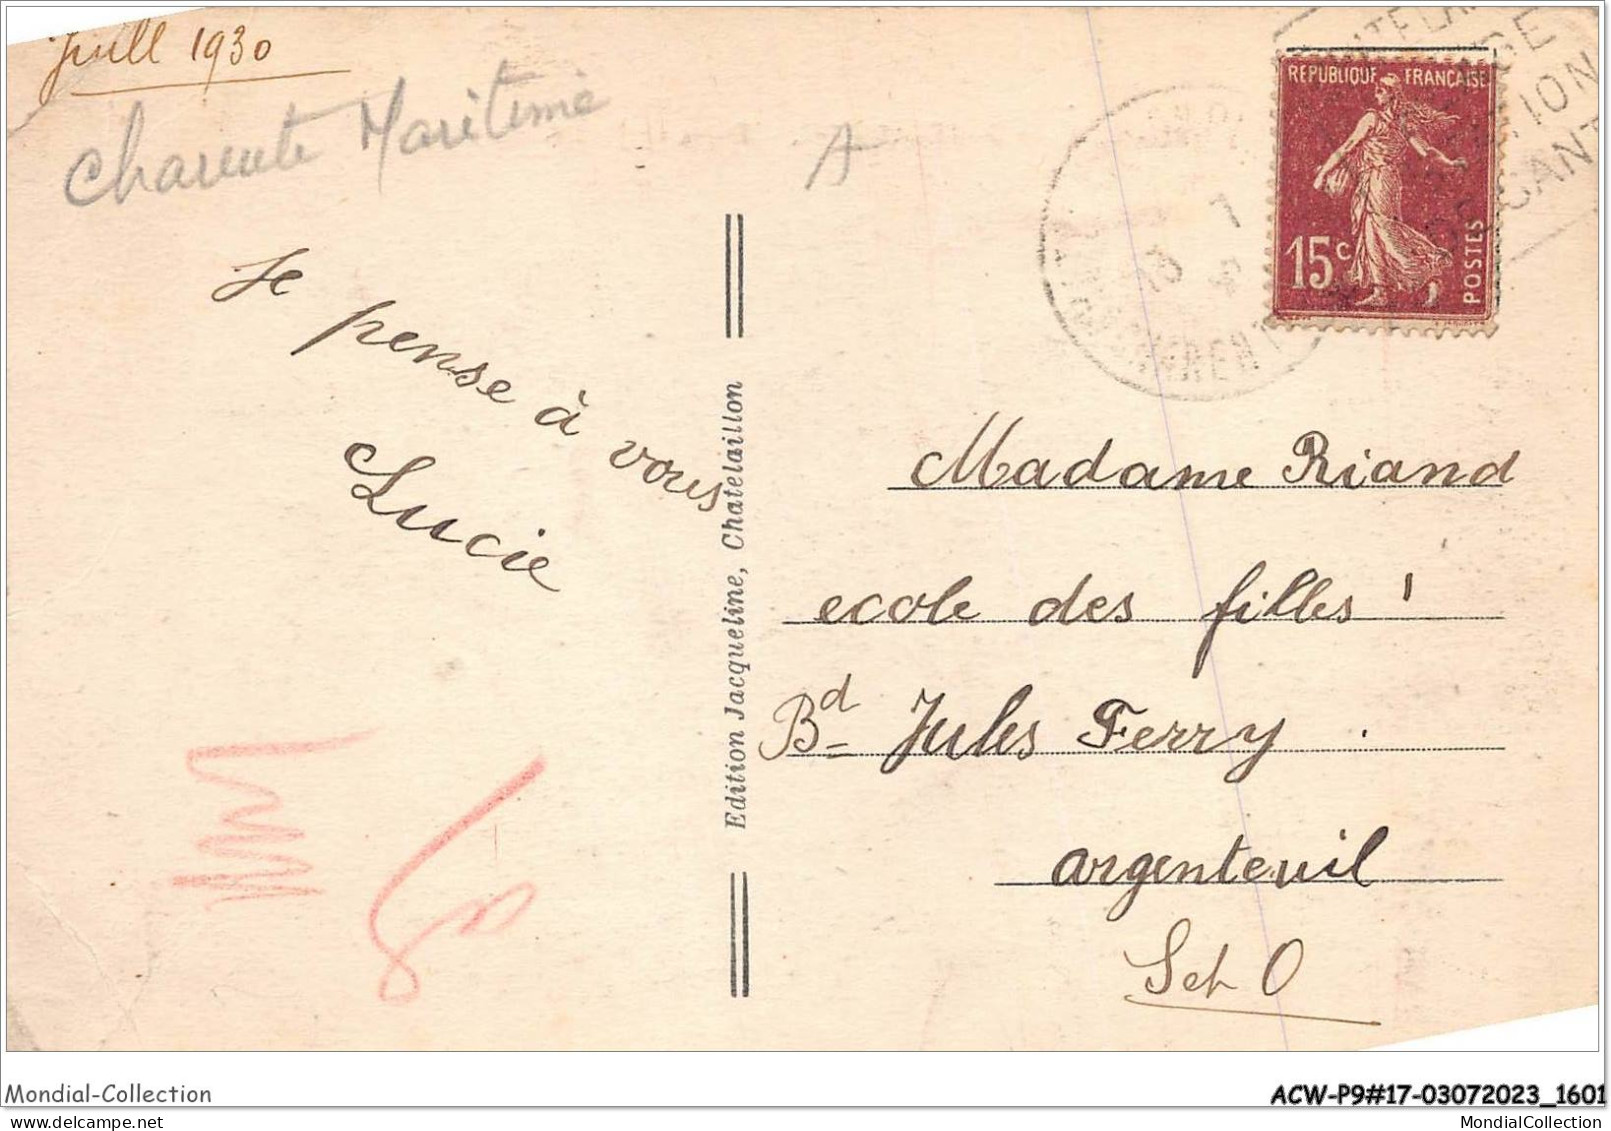 Juill 1930
Charente Maritime
A
RÉPUBLIQUE FRANÇAISE
15c
POSTES
Je pense à vous
Lucie
Edition Jacqueline, Chatelaillon
Madame Riand
ecole des filles
Bd Jules Ferry
argenteuil
S et O
Mondial-Collection
ACW-P9#17-03072023_1601
MondialCollection